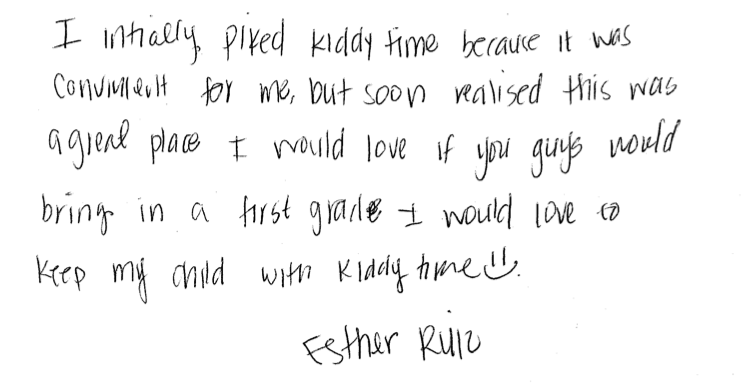 I intially piked kiddy time because it was
convinient for me, but soon realised this was
a great place I would love if you guys would
bring in a first grade I would love to
keep my child with kiddy time
Esther Ruiz